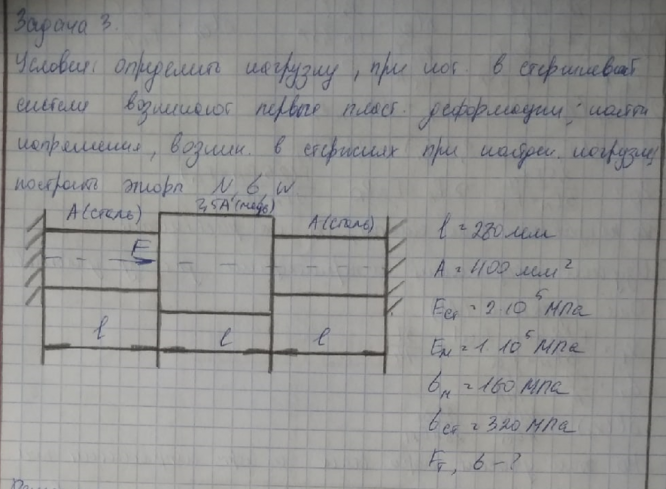 Задача 3.
Условия: определить нагрузку, при кот. в стержневой
системе возникают первые пласт. деформации; найти
напряжения, возник. в стержнях при найден. нагрузке,
построить эпюры N, б, w
A(сталь) 2,5A(медь) A(сталь)
F
l l l
l = 280 мм
A = 400 мм²
Eст = 2·10⁵ МПа
Eм = 1·10⁵ МПа
бм = 160 МПа
бст = 320 МПа
Fт, б - ?